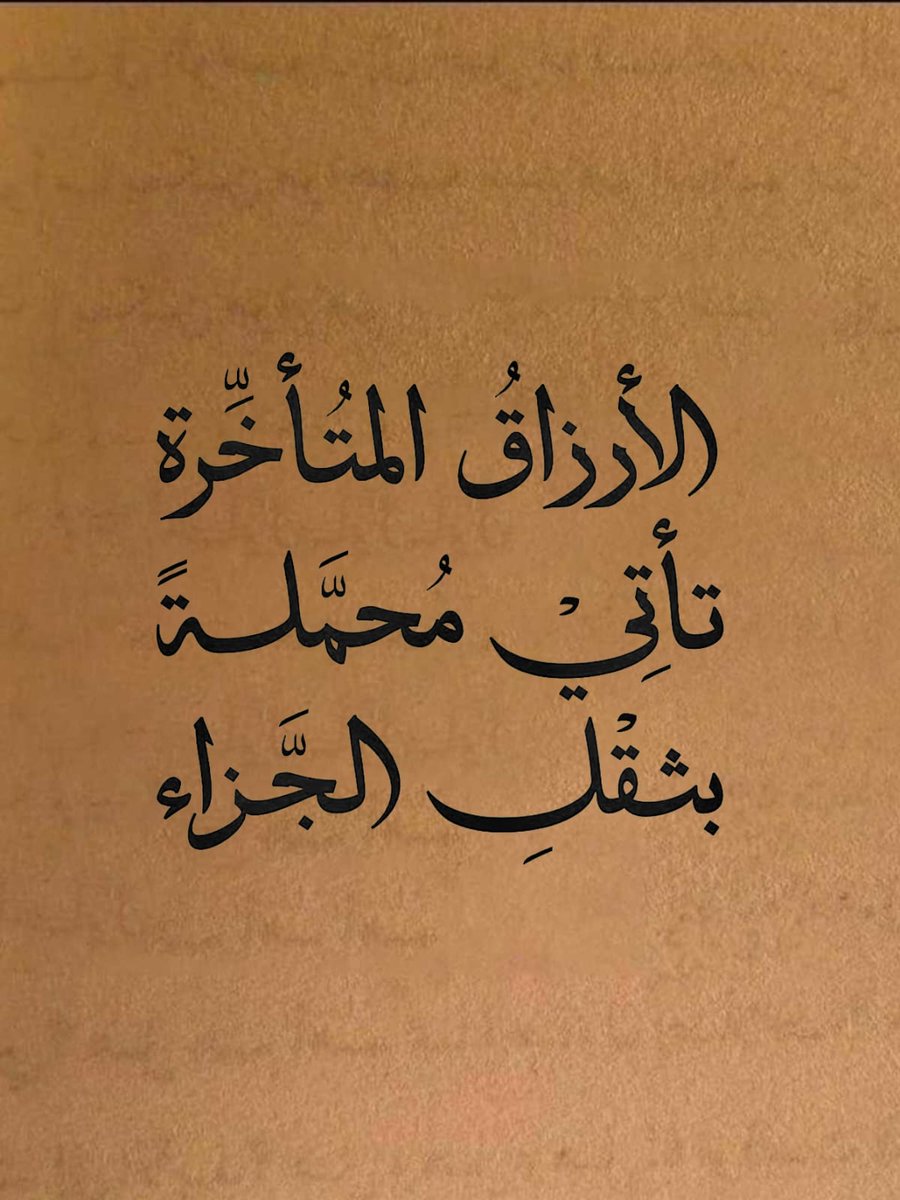 الأرزاقُ المتُأخِّرة
تأتِيْ مُحمَّلةً
بثقْلِ الجَّزاء